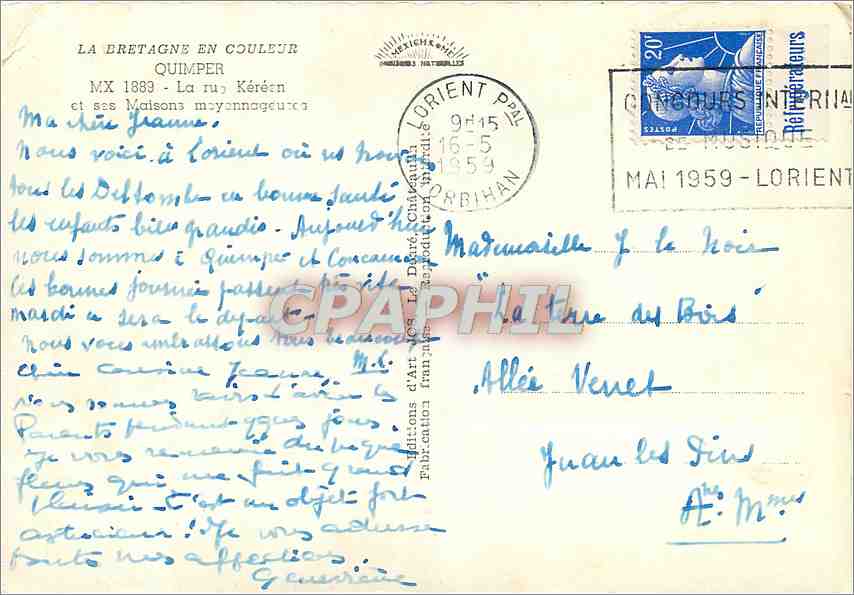 LA BRETAGNE EN COULEUR
QUIMPER
MX 1889 - La rue Kéréon
et ses Maisons moyennageuses
Ma chère Jeanne,
Nous voici à Lorient où ns
tous les en bonne santé
les enfants bien grandis - Aujourd'hui
nous sommes à Quimper et Concarneau
Ces bonnes journées passent très vite
mardi ce sera le départ -
Nous vous embrassons tous beaucoup
M.L.
Chère cousine Jeanne,
Nous sommes ravis d'avoir les
Parents pendant qques jours.
Je vous remercie du pique
fleurs qui me fait grand
plaisir - C'est un objet fort
astucieux! Je vous adresse
toutes mes affections.
Geneviève
Editions d'Art JOS Le Doaré, Châteaulin
Fabrication française Reproduction interdite
MEXICHROME
COULEURS NATURELLES
LORIENT PPAL
9H15
16-5
1959
MORBIHAN
20F
POSTES
REPUBLIQUE FRANÇAISE
Réfrigérateurs
CONCOURS INTERNA
DE MUSIQUE
MAI 1959 - LORIENT
Mademoiselle J le Noir
"La terre des Bois"
Allée Venet
Juan les Pins
Apes Mmes
CPAPHIL